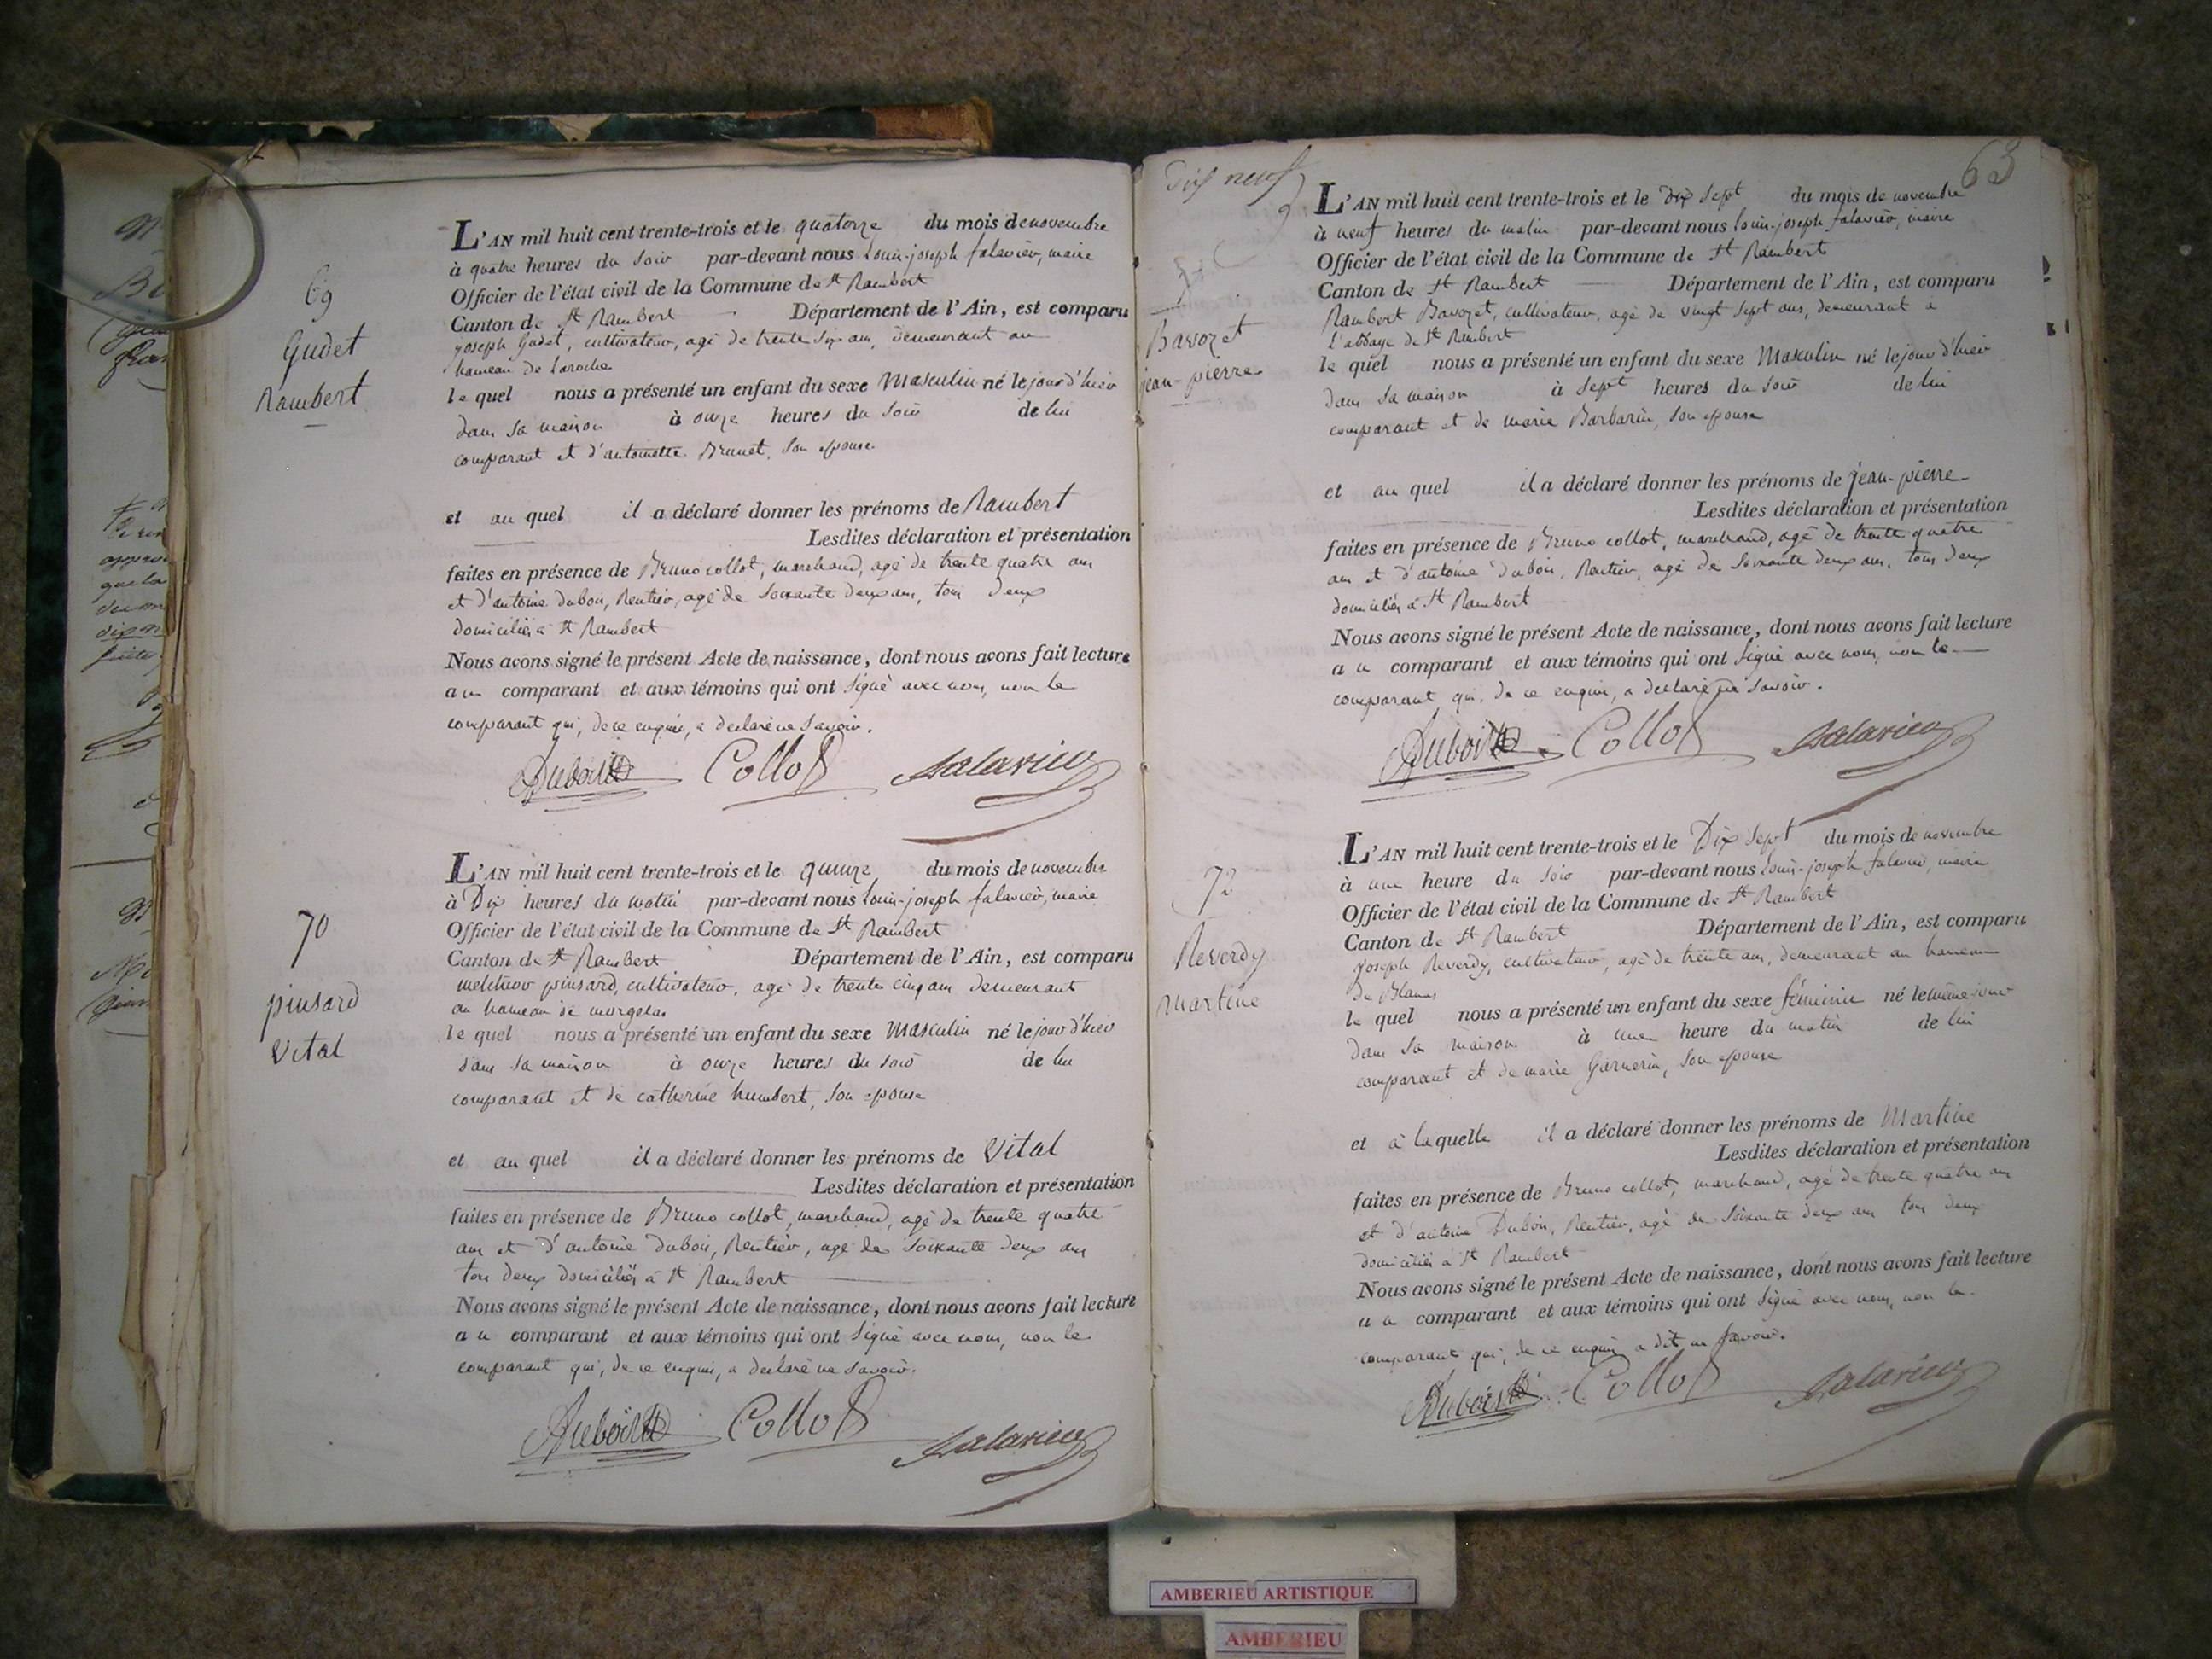 69
Gudet
Rambert
L'AN mil huit cent trente-trois et le quatorze du mois de novembre
à quatre heures du soir par-devant nous Louis-joseph falavier, maire
Officier de l'état civil de la Commune de St Rambert
Canton de St Rambert Département de l'Ain, est comparu
joseph Gudet, cultivateur, agé de trente six ans, demeurant au
hameau de Laroche
le quel nous a présenté un enfant du sexe Masculin né le jour d'hier
dans sa maison à onze heures du soir de lui
comparant et d'antoinette Brunet, son epouse
et au quel il a déclaré donner les prénoms de Rambert
Lesdites déclaration et présentation
faites en présence de Bruno collot, marchand, agé de trente quatre ans
et d'antoine dubois, Rentier, agé de soixante deux ans, tous deux
domiciliés à St Rambert
Nous avons signé le présent Acte de naissance, dont nous avons fait lecture
au comparant et aux témoins qui ont signé avec nous, non le
comparant qui, de ce enquis, a declaré ne savoir.
Dubois Collot falavier
70
pinsard
Vital
L'AN mil huit cent trente-trois et le quinze du mois de novembre
à Dix heures du matin par-devant nous Louis-joseph falavier, maire
Officier de l'état civil de la Commune de St Rambert
Canton de St Rambert Département de l'Ain, est comparu
melchior pinsard, cultivateur, agé de trente cinq ans demeurant
au hameau de morgelas
le quel nous a présenté un enfant du sexe Masculin né le jour d'hier
dans sa maison à onze heures du soir de lui
comparant et de catherine humbert, son epouse
et au quel il a déclaré donner les prénoms de Vital
Lesdites déclaration et présentation
faites en présence de Bruno collot, marchand, agé de trente quatre
ans et d'antoine dubois, Rentier, agé de soixante deux ans
tous deux domiciliés à St Rambert
Nous avons signé le présent Acte de naissance, dont nous avons fait lecture
au comparant et aux témoins qui ont signé avec nous, non le
comparant qui, de ce enquis, a declaré ne savoir.
Dubois Collot falavier
Dix neuf
63
Bavozet
jean-pierre
L'AN mil huit cent trente-trois et le Dix sept du mois de novembre
à neuf heures du matin par-devant nous Louis-joseph falavier, maire
Officier de l'état civil de la Commune de St Rambert
Canton de St Rambert Département de l'Ain, est comparu
Rambert Bavozet, cultivateur, agé de vingt sept ans, demeurant a
L'abbaye de St Rambert
le quel nous a présenté un enfant du sexe Masculin né le jour d'hier
dans sa maison à sept heures du soir de lui
comparant et de marie Barbarin, son epouse
et au quel il a déclaré donner les prénoms de jean-pierre
Lesdites déclaration et présentation
faites en présence de Bruno collot, marchand, agé de trente quatre
ans et d'antoine dubois, Rentier, agé de soixante deux ans, tous deux
domiciliés à St Rambert
Nous avons signé le présent Acte de naissance, dont nous avons fait lecture
au comparant et aux témoins qui ont signé avec nous, non le
comparant qui, de ce enquis, a declaré ne savoir.
Dubois Collot falavier
72
Reverdy
martine
L'AN mil huit cent trente-trois et le Dix sept du mois de novembre
à une heure du soir par-devant nous Louis-joseph falavier, maire
Officier de l'état civil de la Commune de St Rambert
Canton de St Rambert Département de l'Ain, est comparu
joseph Reverdy, cultivateur, agé de trente ans, demeurant au hameau
de Blanas
le quel nous a présenté un enfant du sexe féminin né le même jour
dans sa maison à une heure du matin de lui
comparant et de marie Garnerin, son epouse
et à laquelle il a déclaré donner les prénoms de Martine
Lesdites déclaration et présentation
faites en présence de Bruno collot, marchand, agé de trente quatre ans
et d'antoine Dubois, Rentier, agé de soixante deux ans tous deux
domiciliés à St Rambert
Nous avons signé le présent Acte de naissance, dont nous avons fait lecture
au comparant et aux témoins qui ont signé avec nous, non le
comparant qui, de ce enquis a dit ne savoir.
Dubois Collot falavier
AMBERIEU ARTISTIQUE
AMBERIEU